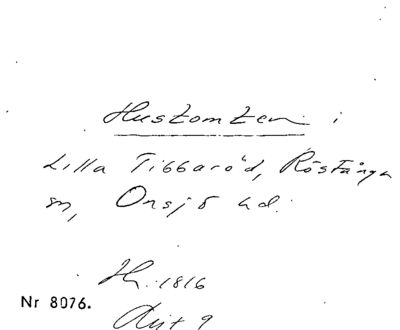 Hustomten i
Lilla Tibbaröd, Röstånga
sn, Onsjö hd.
Hr. 1816
Nr 8076.
9